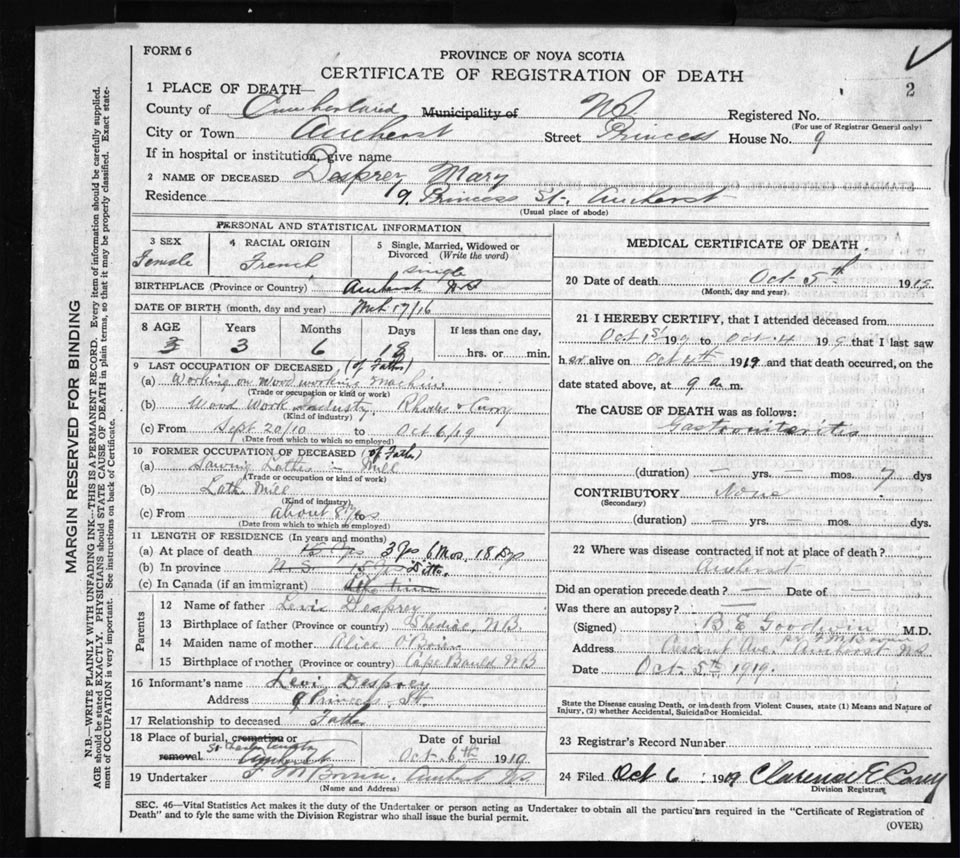 FORM 6
PROVINCE OF NOVA SCOTIA
CERTIFICATE OF REGISTRATION OF DEATH
2
1 PLACE OF DEATH—
County of Cumberland Municipality of NS Registered No.
(For use of Registrar General only)
City or Town Amherst Street Princess House No. 9
If in hospital or institution, give name
2 NAME OF DECEASED Desprey, Mary
Residence 9 Princess St. Amherst
(Usual place of abode)
PERSONAL AND STATISTICAL INFORMATION
3 SEX Female
4 RACIAL ORIGIN French
5 Single, Married, Widowed or Divorced (Write the word) single
BIRTHPLACE (Province or Country) Amherst NS
DATE OF BIRTH (month, day and year) Mch 17/16
8 AGE Years Months Days If less than one day,
3 3 6 18 hrs. or min.
9 LAST OCCUPATION OF DECEASED (of Father)
(a) Working on Wood working Machine
(Trade or occupation or kind or work)
(b) Wood Work Industry, Rhodes & Curry
(Kind of industry)
(c) From Sept 20/10 to Oct 6/19
(Date from which to which so employed)
10 FORMER OCCUPATION OF DECEASED (of Father)
(a) Sawing Lathes in Mill
(Trade or occupation or kind of work)
(b) Lath Mill
(Kind of industry)
(c) From About 8 yrs
(Date from which to which so employed)
11 LENGTH OF RESIDENCE (In years and months)
(a) At place of death 15 yrs 3 ys 6 Mos. 18 Dys
(b) In province N.S. 15 yrs Ditto.
(c) In Canada (if an immigrant) life time
Parents
12 Name of father Levi Desprey
13 Birthplace of father (Province or country) Shediac, N.B.
14 Maiden name of mother Alice O'Brien
15 Birthplace of mother (Province or Country) Cape Bauld NB
16 Informant's name Levi Desprey
Address 9 Princess St.
17 Relationship to deceased Father
18 Place of burial, cremation or removal. Amherst
Date of burial Oct. 6th 1919
19 Undertaker Amherst NS
(Name and Address)
MEDICAL CERTIFICATE OF DEATH.
20 Date of death Oct 5th 1919
(Month, day and year)
21 I HEREBY CERTIFY, that I attended deceased from
Oct 1st 19 to Oct. 4 19 that I last saw
her alive on Oct 4th 1919 and that death occurred, on the
date stated above, at 9 a. m.
The CAUSE OF DEATH was as follows:
Gastroenteritis
(duration) — yrs. — mos. 7 dys
CONTRIBUTORY None
(Secondary)
(duration) — yrs. — mos. dys.
22 Where was disease contracted if not at place of death?
Amherst
Did an operation precede death? — Date of —
Was there an autopsy? —
(Signed) B E Goodwin M.D.
Address Crescent Ave. Amherst NS
Date Oct. 5th 1919.
State the Disease causing Death, or in death from Violent Causes, state (1) Means and Nature of
Injury, (2) whether Accidental, Suicidal or Homicidal.
23 Registrar's Record Number
24 Filed Oct 6 1919 Clarence E Casey
Division Registrar
SEC. 46—Vital Statistics Act makes it the duty of the Undertaker or person acting as Undertaker to obtain all the particulars required in the "Certificate of Registration of
Death" and to fyle the same with the Division Registrar who shall issue the burial permit.
(OVER)
MARGIN RESERVED FOR BINDING
N.B.—WRITE PLAINLY WITH UNFADING INK—THIS IS A PERMANENT RECORD. Every item of information should be carefully supplied.
AGE should be stated EXACTLY. PHYSICIANS should STATE CAUSE OF DEATH in plain terms, so that it may be properly classified. Exact statement
of OCCUPATION is very important. See instructions on back of Certificate.